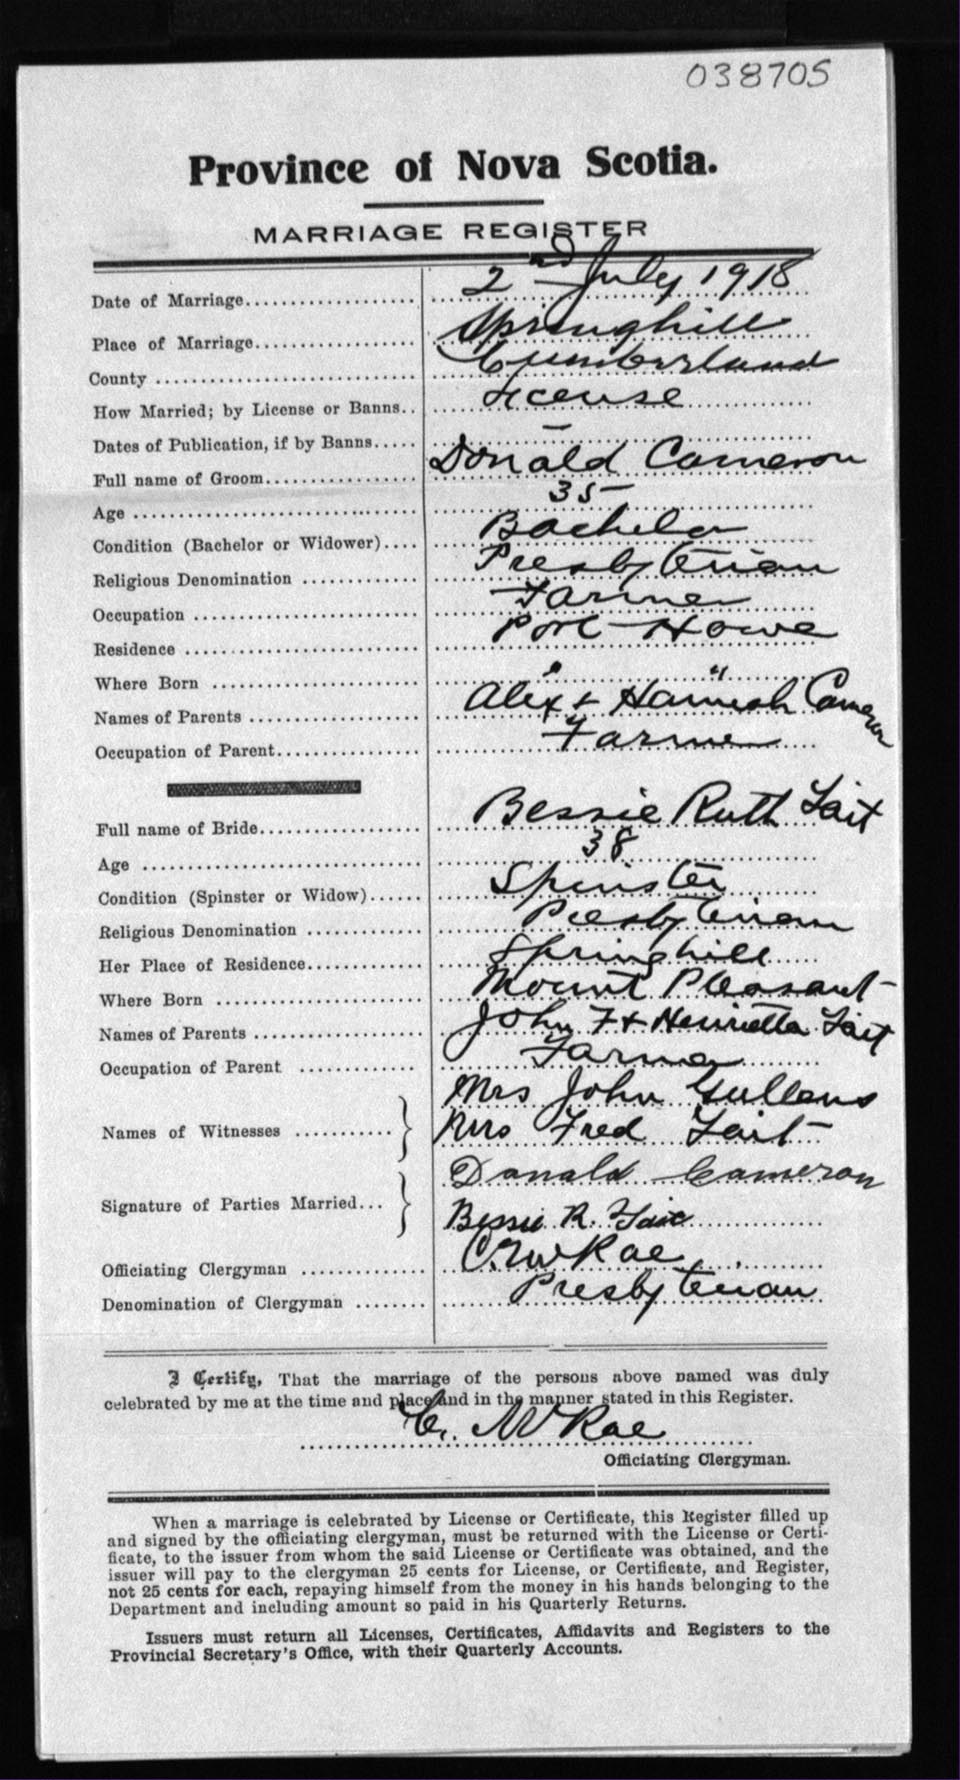 038705
Province of Nova Scotia.
MARRIAGE REGISTER
Date of Marriage 2nd July 1918
Place of Marriage Springhill
County Cumberland
How Married; by License or Banns License
Dates of Publication, if by Banns —
Full name of Groom Donald Cameron
Age 35
Condition (Bachelor or Widower) Bachelor
Religious Denomination Presbyterian
Occupation Farmer
Residence Port Howe
Where Born " "
Names of Parents Alex & Cameron
Occupation of Parent Farmer
Full name of Bride Bessie Ruth Tait
Age 38
Condition (Spinster or Widow) Spinster
Religious Denomination Presbyterian
Her Place of Residence Springhill
Where Born Mount Pleasant
Names of Parents John F & Henrietta Tait
Occupation of Parent Farmer
Names of Witnesses } Mrs John
Mrs Fred Tait
Signature of Parties Married } Donald Cameron
Bessie R. Tait
Officiating Clergyman C. McRae
Denomination of Clergyman Presbyterian
I Certify, That the marriage of the persons above named was duly
celebrated by me at the time and place and in the manner stated in this Register.
C. McRae
Officiating Clergyman.
When a marriage is celebrated by License or Certificate, this Register filled up
and signed by the officiating clergyman, must be returned with the License or Certi-
ficate, to the issuer from whom the said License or Certificate was obtained, and the
issuer will pay to the clergyman 25 cents for License, or Certificate, and Register,
not 25 cents for each, repaying himself from the money in his hands belonging to the
Department and including amount so paid in his Quarterly Returns.
Issuers must return all Licenses, Certificates, Affidavits and Registers to the
Provincial Secretary's Office, with their Quarterly Accounts.